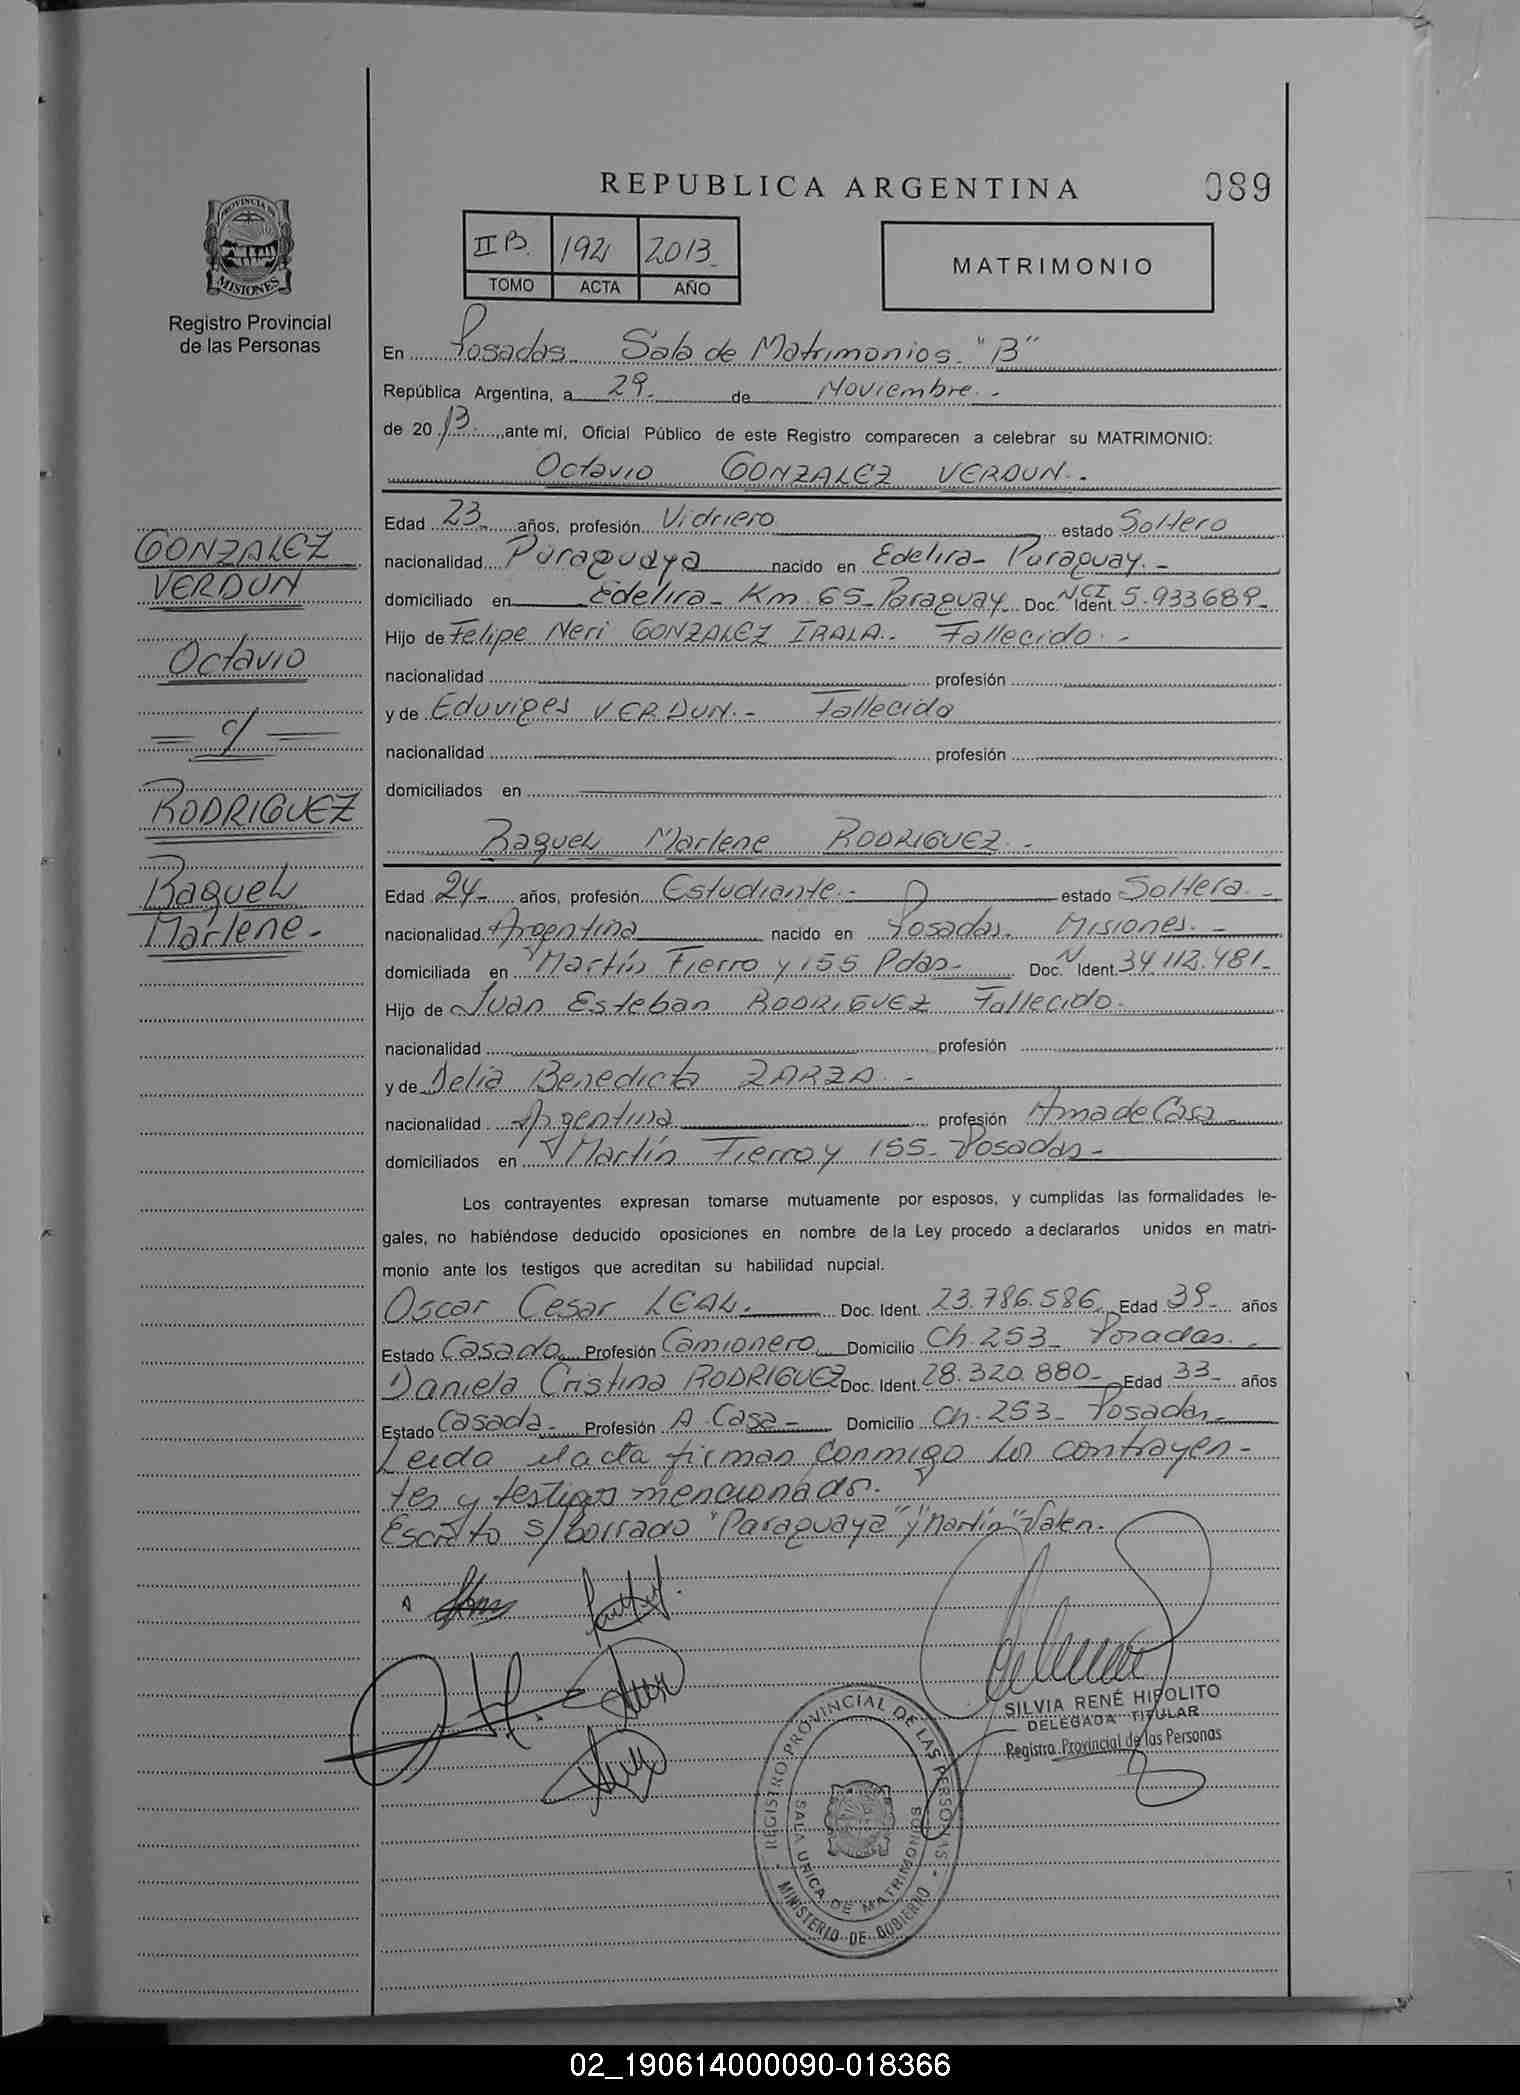 REPUBLICA ARGENTINA
089
II B. 192 2013
TOMO ACTA AÑO
MATRIMONIO
PROVINCIA DE
MISIONES
Registro Provincial
de las Personas
En Posadas Sala de Matrimonios. "B"
República Argentina, a 29. de Noviembre.
de 20 13. ,ante mí, Oficial Público de este Registro comparecen a celebrar su MATRIMONIO:
Octavio GONZALEZ VERDUN.
Edad 23 años, profesión Vidriero estado Soltero
nacionalidad Paraguaya nacido en Edelira- Paraguay.-
domiciliado en Edelira- Km. 65- Paraguay Doc. N CI Ident. 5.933689-
Hijo de Felipe Neri GONZALEZ IRALA. Fallecido.-
nacionalidad profesión
y de Eduviges VERDUN.- Fallecida
nacionalidad profesión
domiciliados en
Raquel Marlene RODRIGUEZ.-
Edad 24- años, profesión Estudiante.- estado Soltera.-
nacionalidad Argentina nacido en Posadas. Misiones.-
domiciliada en Martín Fierro y 155 Pdas- Doc. N Ident. 34.112.481-
Hijo de Juan Esteban RODRIGUEZ Fallecido.
nacionalidad profesión
y de Delia Benedicta ZARZA.-
nacionalidad Argentina profesión Ama de Casa
domiciliados en Martín Fierro y 155- Posadas-
Los contrayentes expresan tomarse mutuamente por esposos, y cumplidas las formalidades le-
gales, no habiéndose deducido oposiciones en nombre de la Ley procedo a declararlos unidos en matri-
monio ante los testigos que acreditan su habilidad nupcial.
Oscar Cesar LEAL. Doc. Ident. 23.786.586 Edad 39- años
Estado Casado Profesión Camionero Domicilio Ch. 253- Posadas.
Daniela Cristina RODRIGUEZ Doc. Ident. 28.320.880- Edad 33- años
Estado Casada- Profesión A. Casa- Domicilio Ch. 253- Posadas-
Leida el acta firman conmigo los contrayen-
tes y testigos mencionados.
Escrito s/borrado "Paraguaya" y "Martín" Valen.
GONZALEZ
VERDUN
Octavio
c/
RODRIGUEZ
Raquel
Marlene-
SILVIA RENÉ HIPOLITO
DELEGADA TITULAR
Registro Provincial de las Personas
REGISTRO PROVINCIAL DE LAS PERSONAS
SALA UNICA DE MATRIMONIOS
MINISTERIO DE GOBIERNO
02_190614000090-018366